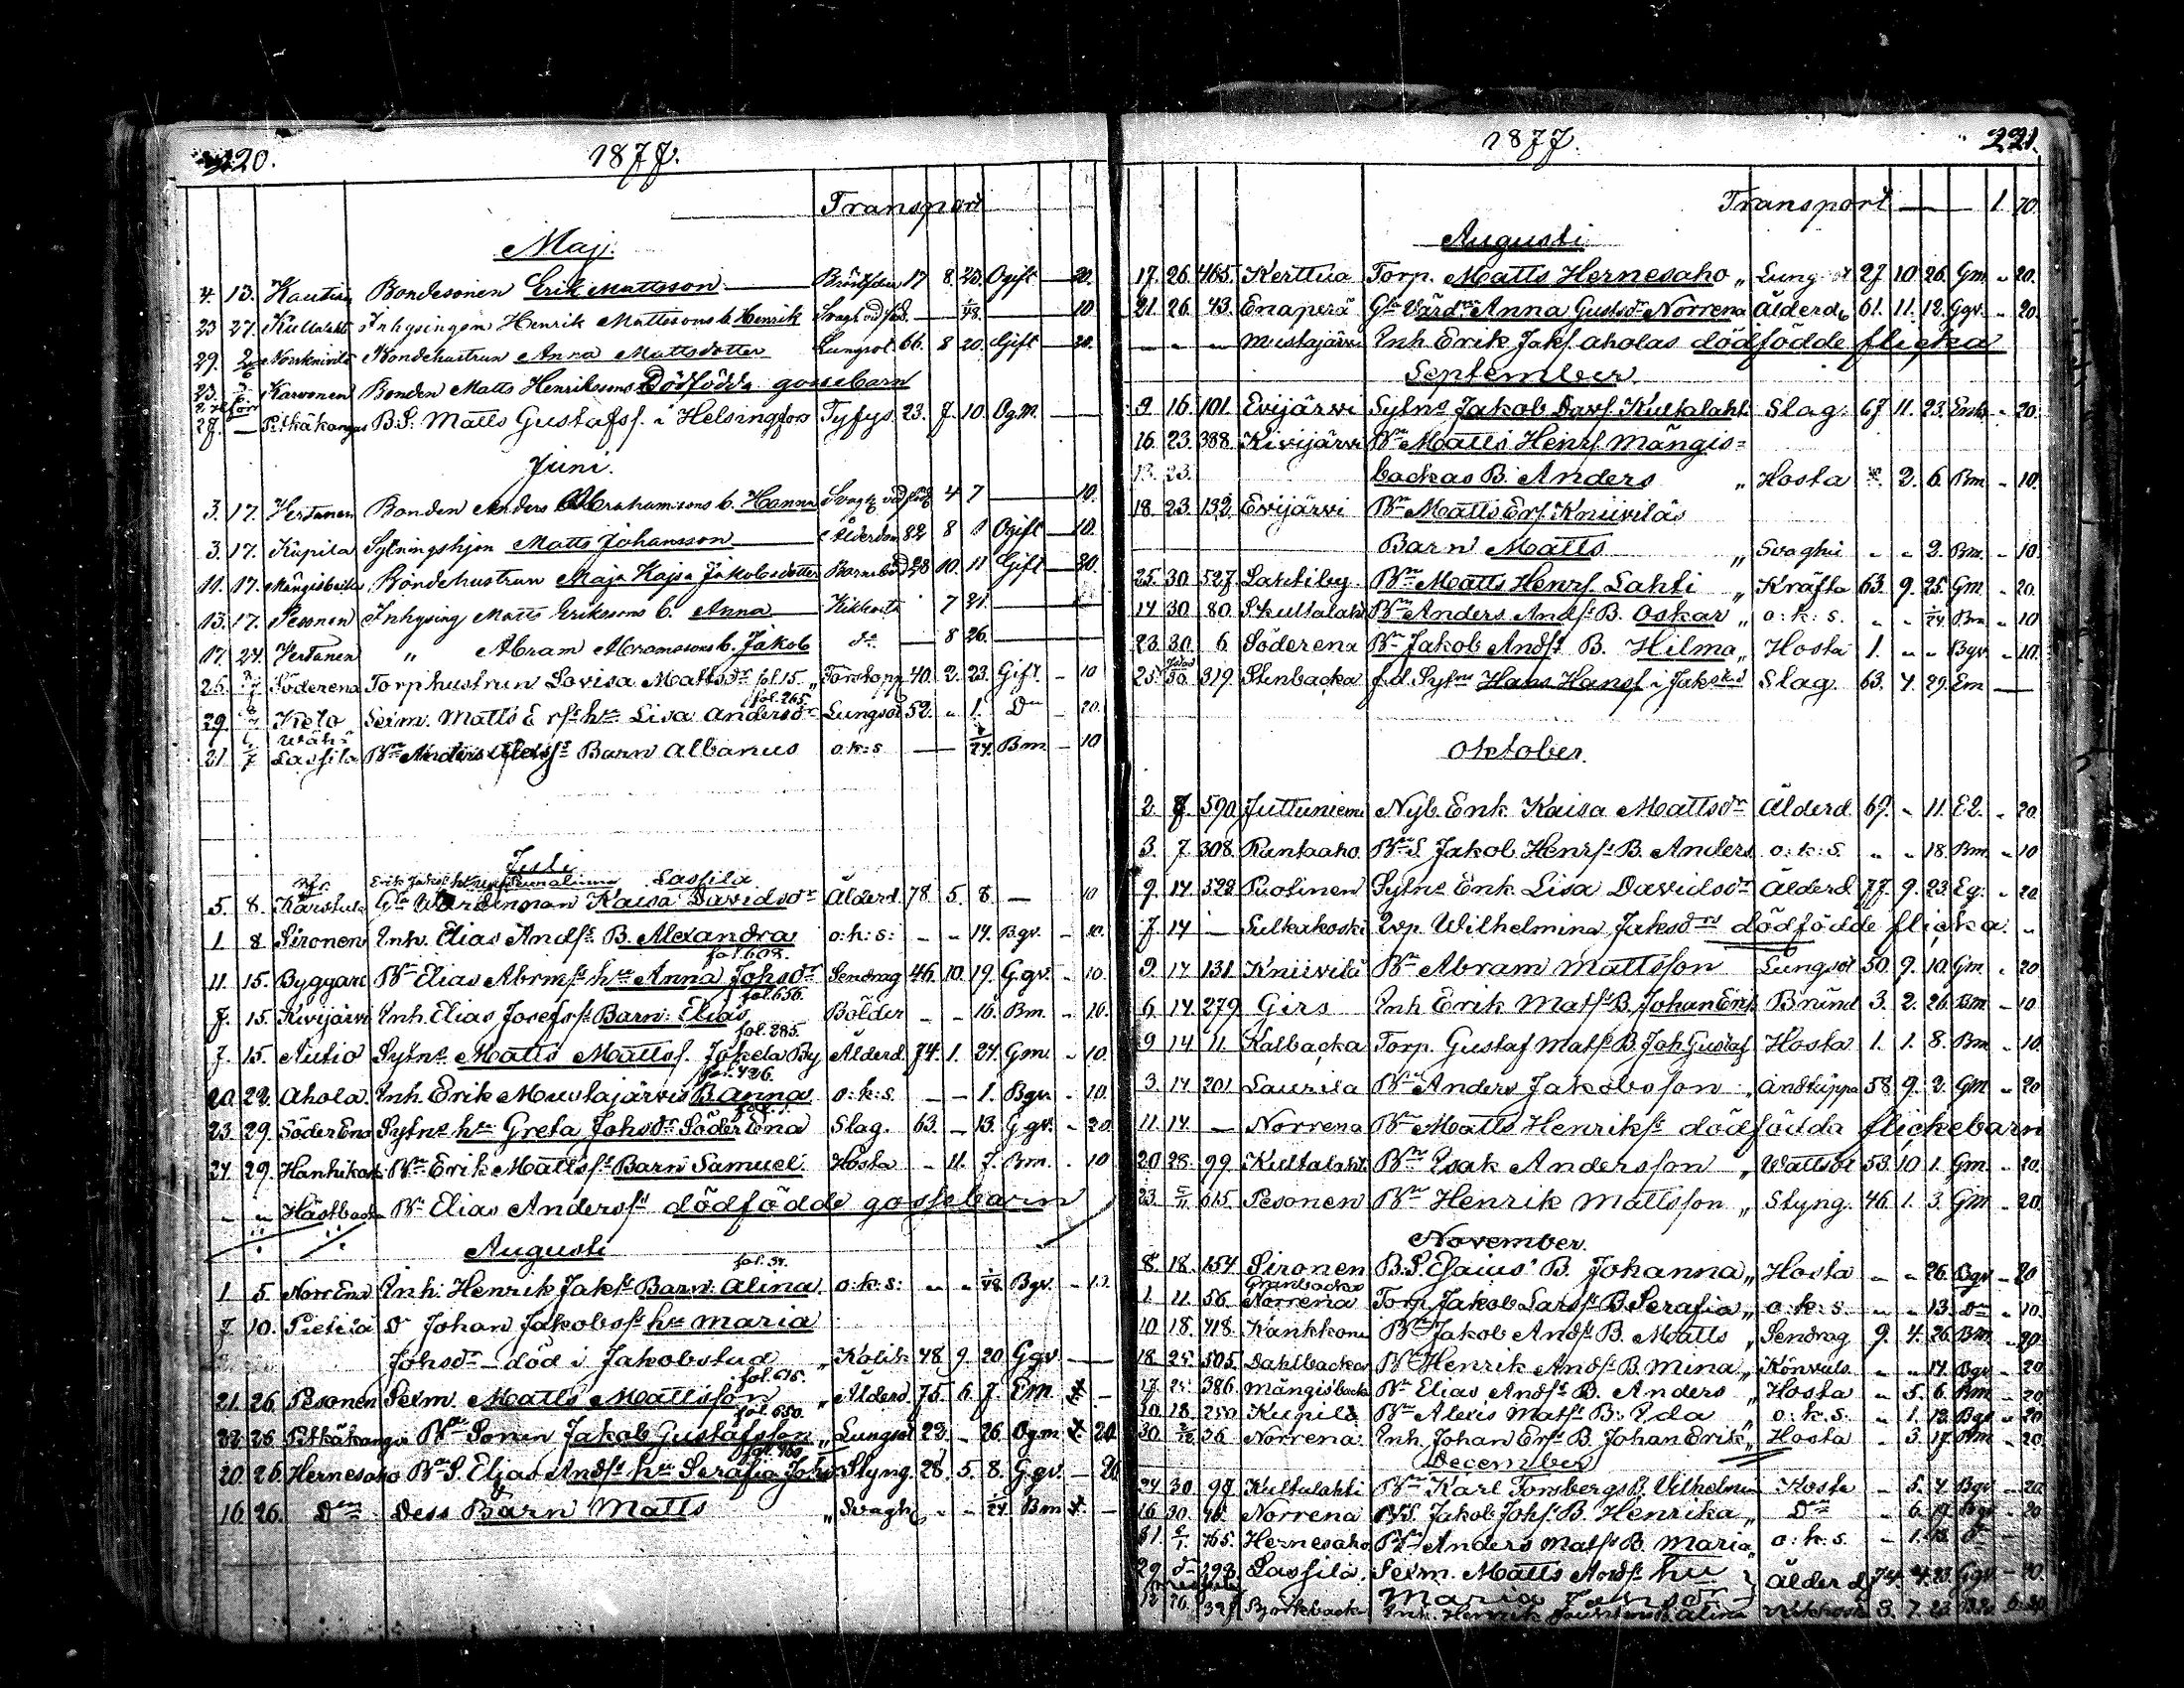 220. 1877.
Transport
Maj.
4. 13. Kautiai Bondesonen Erik Mattsson Bröstfeber 17 8 23. Ogift 20.
23 27. Kultalahti Inhysingen Henrik Mattssons b. Henrik Svagh. vid föd. 1/48. 10
29. Bondehustrun Anna Mattsdotter Lungsot. 66. 8 20. Gift 20.
23. Karvonen Bonden Matts Henrikssons Dödfödda gossebarn
27. Pitkäkangas B.S. Matts Gustafss. i Helsingfors Tyfys. 23. 7. 10. Og.m.
Juni.
3. 17. Hertunen Bonden Anders Abrahamssons b. Hanna Svagh. vid föd. 4 7 10.
3. 17. Kupila Sytningshjon Matts Johansson Ålderdom 82 8 1 Ogift 10.
11. 17. Mängisbacka Bondehustrun Maja Kajsa Jakobsdotter Barnsbörd 28 10. 11 Gift 20.
13. 17. Pesonen Inhysing Matts Erikssons b. Anna Kikhosta 7 21.
17. 24. Hertunen " Abram Abramssons b. Jakob do 8 26.
25. Söderena Torphustrun Lovisa Mattsdr fol. 15. Förstopp. 40. 2. 23. Gift. 10
fol. 265.
29. Keto Seim. Matts Erss hru Lisa Andersdr Lungsot 52. " 1. Do 20.
Wähä
21 Lassila Bn Anders Barn Albanus o.k.s 1/24. Bm. 10
Juli
Lassila
5. 8. Karstula Kaisa Davidsdr Ålderd. 78. 5. 8. 10
1. 8 Sironen Inh. Elias Andss B. Alexandra o:k:s: - - 14. Bgv. - 10.
fol. 608.
11. 15. Byggare Bn Elias Abrmss hru Anna Johsdr Sendrag 46. 10. 19. G.gv. - 10.
fol. 656.
7. 15. Kivijärvi Inh. Elias Josefss Barn: Elias Bölder - - 16. Bm. - 10.
fol. 285.
7. 15. Autio Sytns Matts Mattss. Jokela By Ålderd. 74. 1. 24. Gm. - 10.
fol. 426.
20. 22. Ahola. Inh. Erik Mustajärvis B. Anna o:k:s. - - 1. Bgv. - 10.
23. 29. SöderEna Sytns hru Greta Johsdr SöderEna Slag. 63. - 13. G.gv. - 20.
24 29. Hanhikoski Bn Erik Mattss Barn Samuel. Hosta - 11. 7. Bm. - 10
" " Hästbacka Bn Elias Anderss dödfödde gossebarn
Augusti
fol. 34.
1. 5. NorrEna Inh. Henrik Jakss Barn: Alina. o:k:s: - - 1/48 Bgv. - 10.
7. 10. Pietilä Dr Johan Jakobss hru Maria
Johsdr - död i Jakobstad " Kolik 48. 9. 20 G.gv.
fol. 615.
21. 26. Pesonen Seim Matts Mattsson " Ålderd. 75. 6. 7. Em.
fol. 650.
22. 26 Pitkäkangas Bn Sonen Jakob Gustafsson " Lungsot 23. - 26 Ogm. 20
20. 26. Hernesaho Bn S. Elias Andss hru Serafia Johsdr Styng. 28. 5. 8. G.gv. - 20
16. 26. Do Dess Barn Matts " Svagh - - 1/24 Bm. -
1877. 221.
Transport 1. 70.
Augusti
17. 26. 465. Kerttua Torp. Matts Hernesaho " Lungsot 27 10 26. Gm. " 20.
21. 26. 43. Enaperä Gla Värdn Anna Gustsdr Norrena Ålderd. 61. 11. 12. Ggv. " 20.
" " " Mustajärvi Inh. Erik Jaks. Aholas dödfödde flicka
September.
9. 16. 101. Evijärvi Sytns Jakob Davs. Kultalahti Slag. 67. 11. 23. Enk. " 20.
16. 23. 388. Kivijärvi Bn Matts Henrs. Mängis=
13. 23. backas B. Anders " Hosta 2. 6. Bm. " 10.
18. 23. 132. Evijärvi Bn Matts Ers. Kniiviläs
Barn Matts " Svaghet " " 2. Bm. " 10.
25. 30. 527. Lahtiby. Bn Matts Henrs. Lahti " Kräfta 63. 9. 25. Gm. " 20.
14 30 80. Kultalahti Bn Anders Andss B. Oskar " o:k:s. " " 1/24. Bm. " 10
23 30. 6 Söderena Bn Jakob Andss B. Hilma " Hosta 1. " " Bgv. " 10.
25. 30 319. Stenbacka f.d. Sytns Hans Hanss. i Jakstad Slag. 63. 7. 29. Em.
Oktober.
2. 7. 590 Juttuniemi Nyb. Enk. Kaisa Mattsdr Ålderd. 69. " 11. " 20.
3. 7. 308. Rantaaho. Bn S. Jakob Henrss B. Anders o:k:s. " " 18. Bm. " 10
9. 14. 528. Puotinen Sytns Enk. Lisa Davidsdr Ålderd 77. 9. 23 Eg. " 20
7. 14 - Sulkakoski Qvp. Wilhelmina Jaksdrs dödfödde flicka. "
9. 14 131. Kniivilä Bn Abram Mattsson Lungsot 50. 9. 10. Gm. " 20
6. 14. 279 Girs Inh Erik Matss B. Johan Erik Bränd 3. 2. 26. Bm. - 10
9 14 11. Kalbacka Torp. Gustaf Matss B. Joh Gustaf Hosta 1. 1. 8. Bm - 10.
3. 14. 201. Laurila Bn Anders Jakobsson " Andtäppa 58. 9. 2. Gm. - 20
11. 14. - Norrena Bn Matts Henrikss dödfödda flickebarn
20. 28. 99. Kultalahti Bn Isak Andersson " Wattsot 53. 10 1. Gm. " 20.
23. 5/11 615. Pesonen Bn Henrik Mattsson " Styng. 46. 1. 3. Gm. 20.
November.
8. 18. 154 Sironen B.S. Esaias' B. Johanna " Hosta " " 26. Bgv. - 20
Granbacka
1. 11. 56 Norrena Torp. Jakob Larss B. Serafia " o:k:s. " " 13. Do " 10.
10 18. 418. Kankkonen Bn Jakob Andss B. Matts " Sendrag 9. 4. 26. Bm. 20.
18. 25. 505. Dahlbacka Bn Henrik Andss B. Mina " Konvuls. " " 14. Bgv. - 20
17. 25. 386. Mängisbacka Bn Elias Andss B. Anders " Hosta " 5. 6. Bm - 20
10 18. 250 Kupila Bn Alexis Matss B. Ida " o:k:s. " 1. 12. Bgv " 20
30. 36. Norrena. Inh. Johan Erss B. Johan Erik " Hosta " 3. 17. Bm - 20.
December
24 30. 98 Kultalahti Bn Karl Forsbergs B. Vilhelmina Hosta - 5. 4. Bgv - 20.
16. 30. 46. Norrena B.S. Jakob Johss B. Henrika " Do " 6. 19. Bgv - 20
31. 465. Hernesaho Bn Anders Matss B. Maria " o:k:s. - 1. 18.
29. 293. Lassila. Seim. Matts Andss hru } Ålderd. 74. 4. 23. Ggv. - 20.
Maria
Björkbacka Inh. Henrik Alina Kikhosta 3. 7. 23